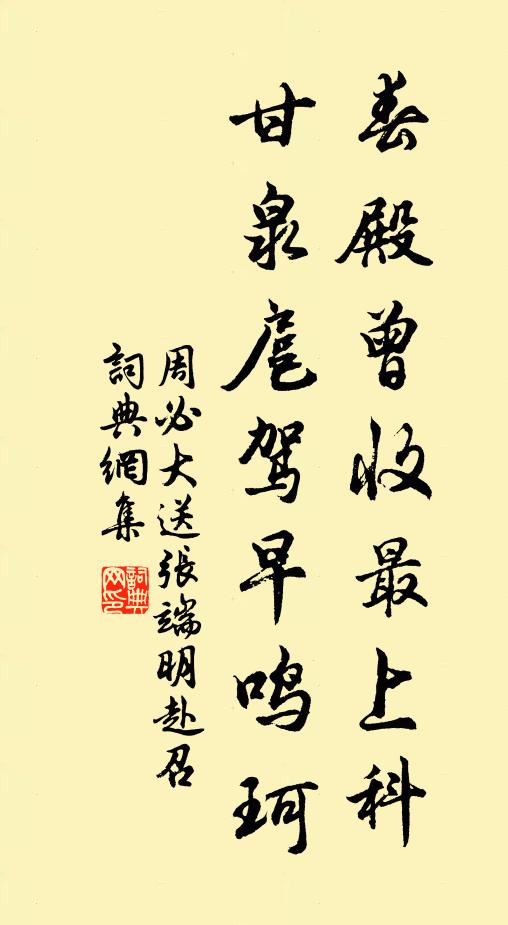 春殿曾收最上科
甘泉扈驾早鸣珂
周必大送張端明赴召
詞典網集
詞典
网印